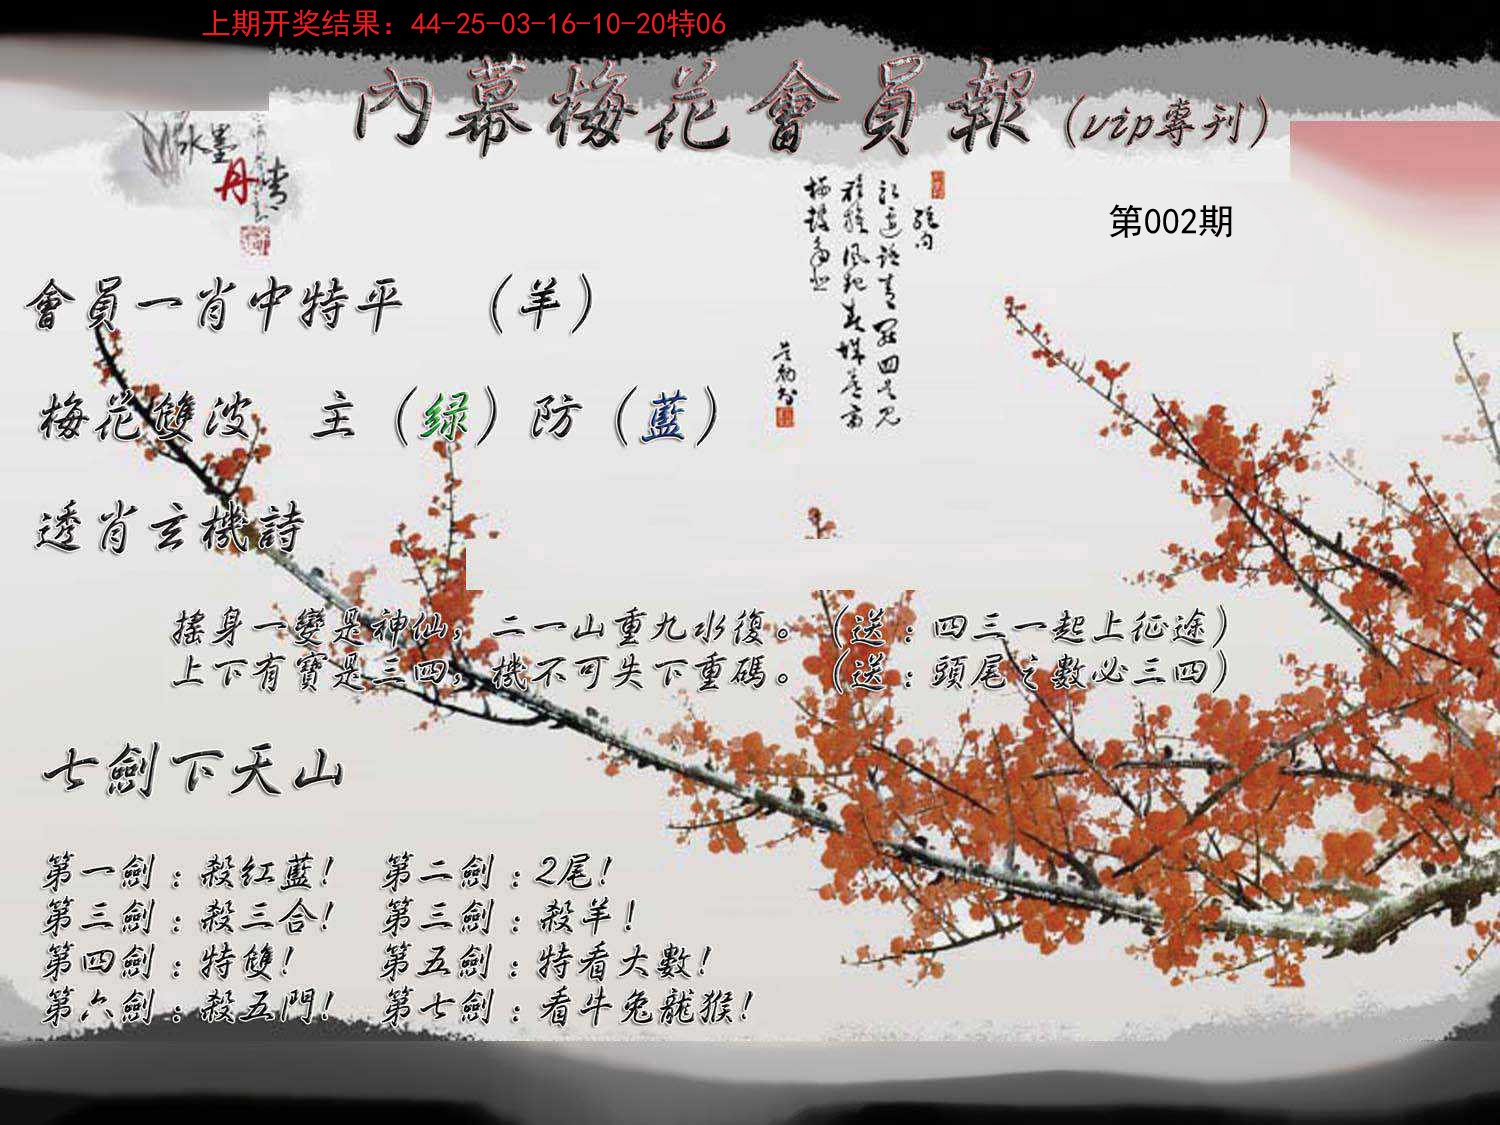 上期开奖结果：44-25-03-16-10-20特06
內幕梅花會員報（vip專刊）
水墨
丹
情
第002期
會員一肖中特平　（羊）
梅花雙波　主（緑）防（藍）
透肖玄機詩
搖身一變是神仙，二一山重九水復。（送：四三一起上征途）
上下有寶是三四，機不可失下重碼。（送：頭尾之數必三四）
七劍下天山
第一劍：殺红藍！　第二劍：2尾！
第三劍：殺三合！　第三劍：殺羊！
第四劍：特雙！　第五劍：特看大數！
第六劍：殺五門！　第七劍：看牛兔龍猴！